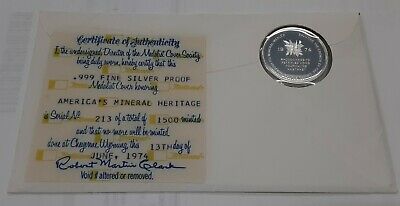 Certificate of Authenticity
I the undersigned Director of the Medalist Cover Society
being duly sworn, hereby certify that this
.999 FINE SILVER PROOF
Medalist Cover honoring
AMERICA'S MINERAL HERITAGE
is Serial No. 213 of a total of 1500 minted
and that no more will be minted.
done at Cheyenne Wyoming, this 13TH day of
JUNE, 1974
Robert Martin Clark
Void if altered or removed.